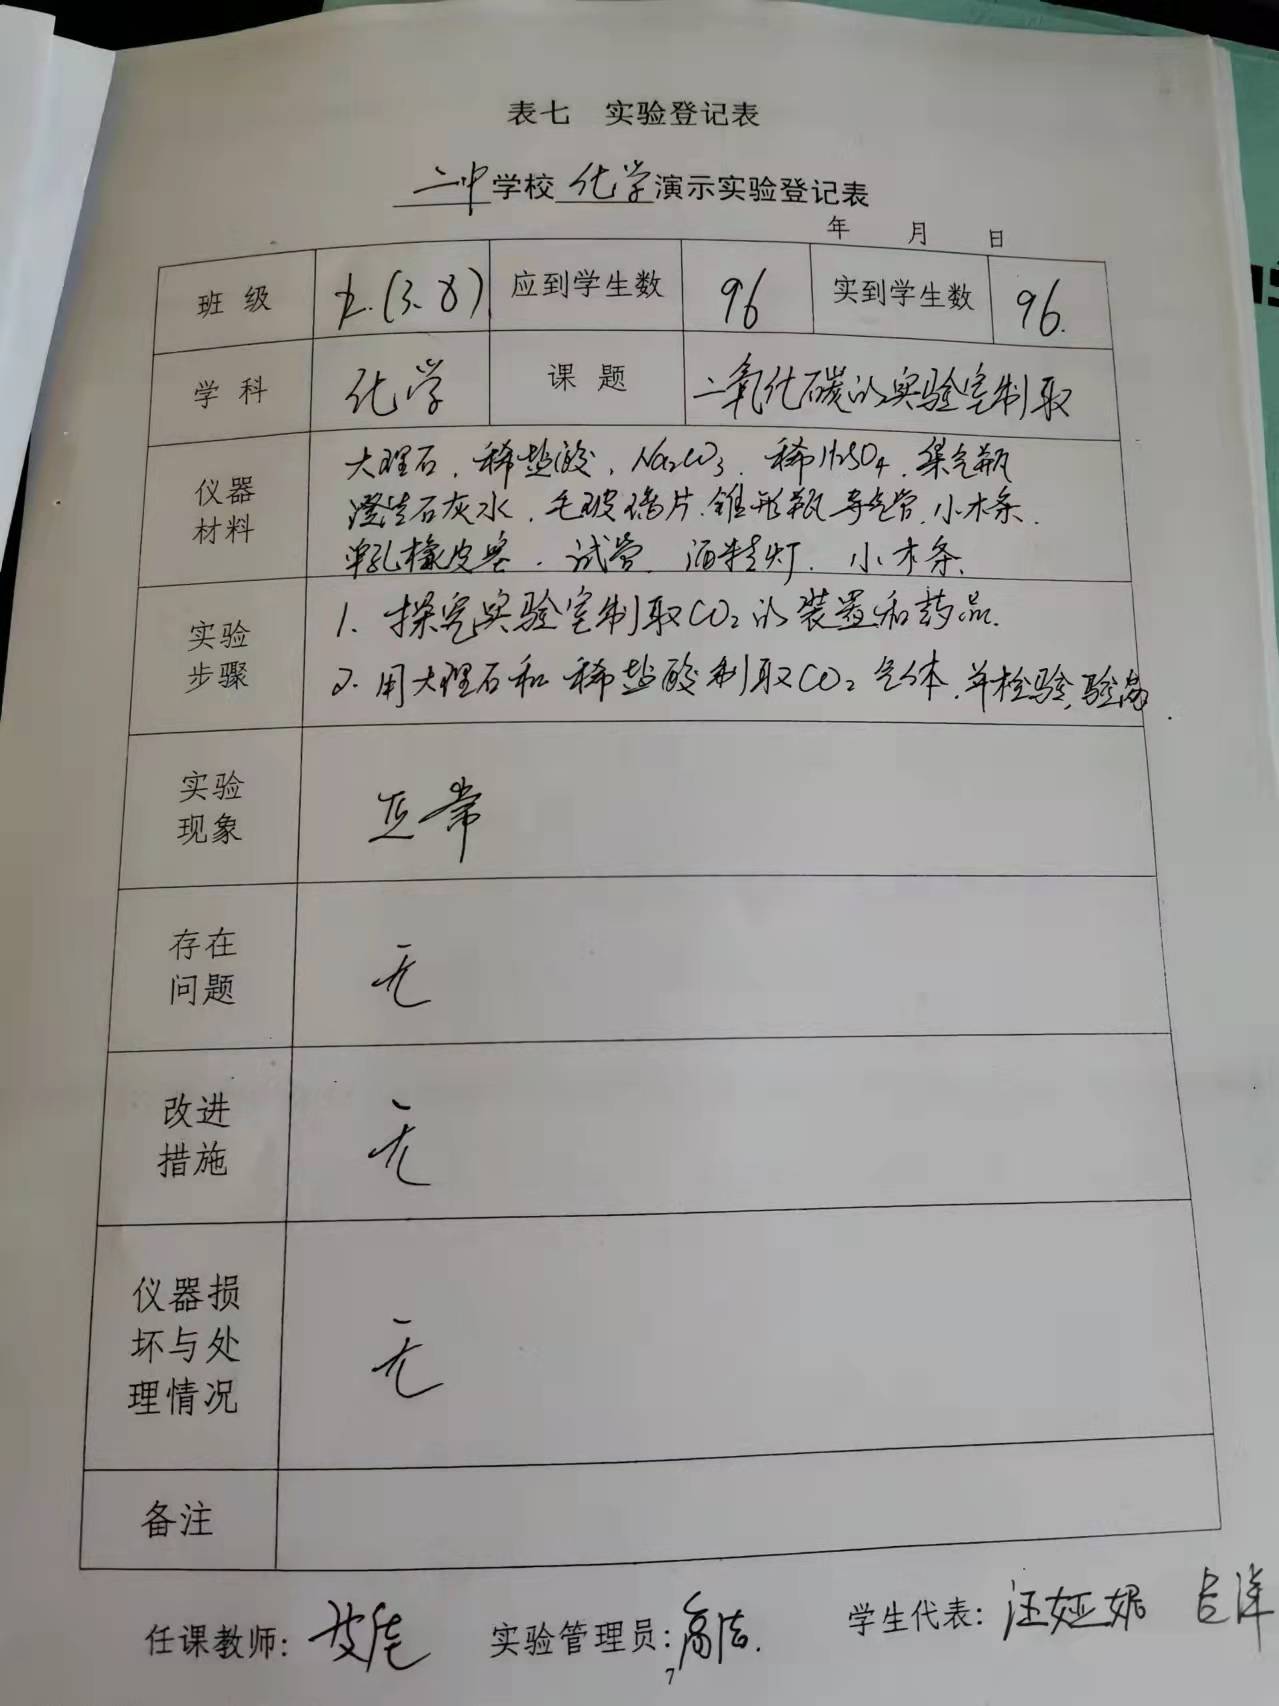 表七 实验登记表
二中学校化学演示实验登记表
年 月 日
班级 九.(3.8) 应到学生数 96 实到学生数 96.
学科 化学 课题 二氧化碳的实验室制取
仪器材料
大理石、稀盐酸、Na2CO3、稀H2SO4、集气瓶
澄清石灰水、毛玻璃片、锥形瓶 导气管、小木条、
单孔橡皮塞、试管、酒精灯、小木条、
实验步骤
1. 探究实验室制取CO2的装置和药品.
2. 用大理石和稀盐酸制取CO2气体,并检验,验满
实验现象
正常
存在问题
无
改进措施
无
仪器损坏与处理情况
无
备注
任课教师: 实验管理员: 学生代表: 汪娅妮
7